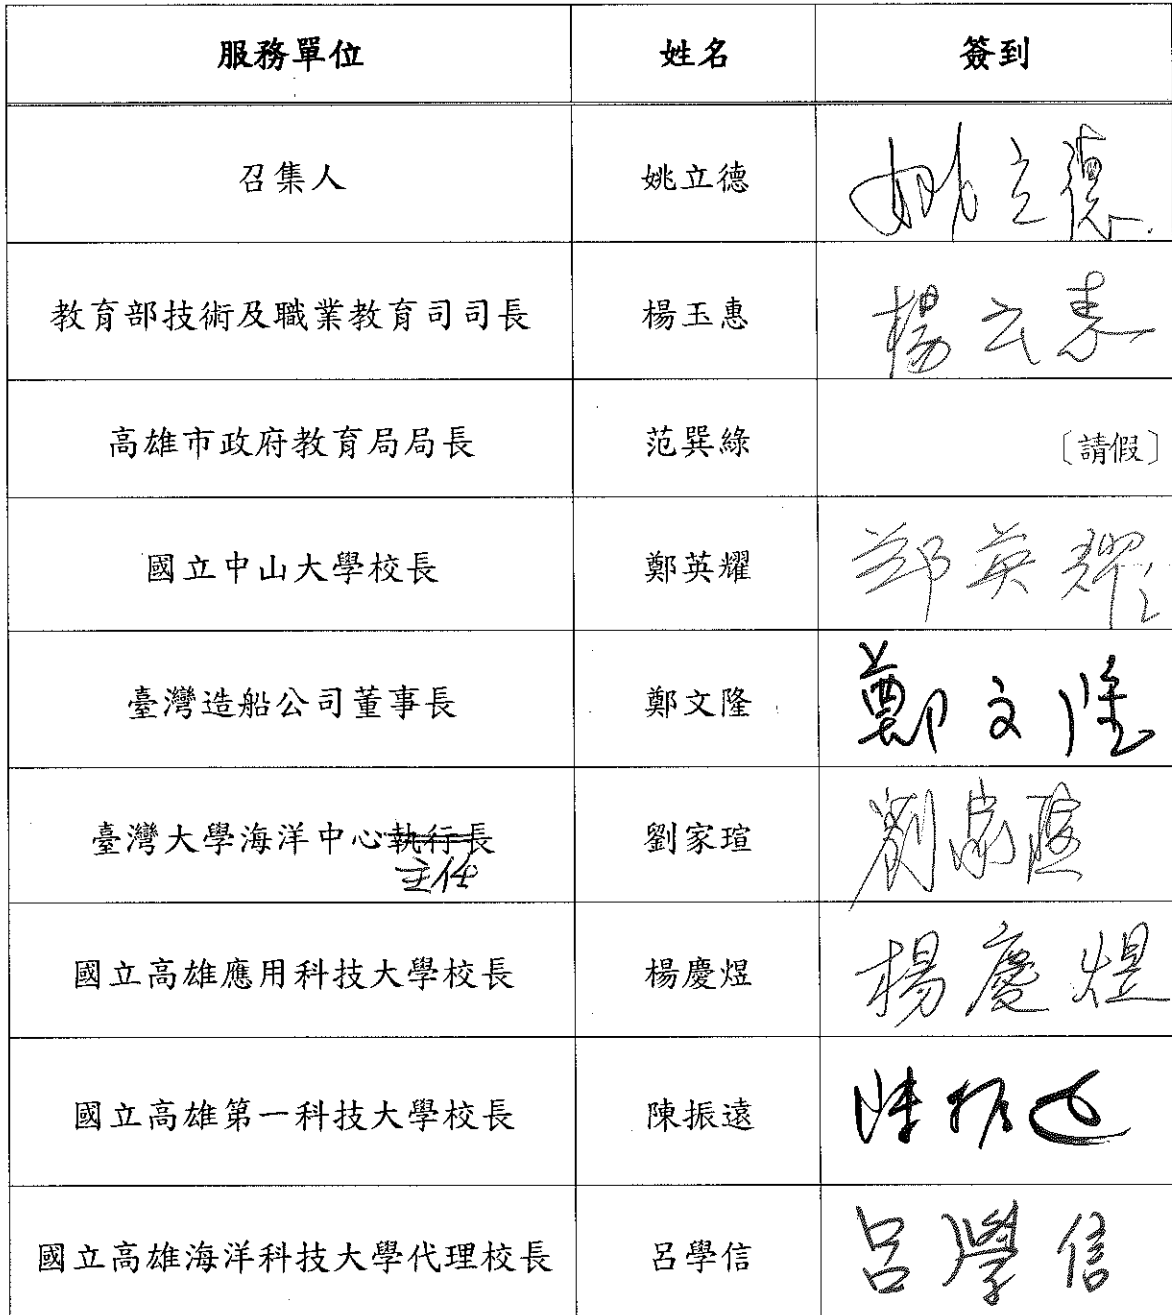 服務單位 姓名 簽到
召集人 姚立德 姚立德
教育部技術及職業教育司司長 楊玉惠 楊玉惠
高雄市政府教育局局長 范巽綠 〔請假〕
國立中山大學校長 鄭英耀 鄭英耀
臺灣造船公司董事長 鄭文隆 鄭文隆
臺灣大學海洋中心執行長 劉家瑄 劉家瑄
主任
國立高雄應用科技大學校長 楊慶煜 楊慶煜
國立高雄第一科技大學校長 陳振遠 陳振遠
國立高雄海洋科技大學代理校長 呂學信 呂學信